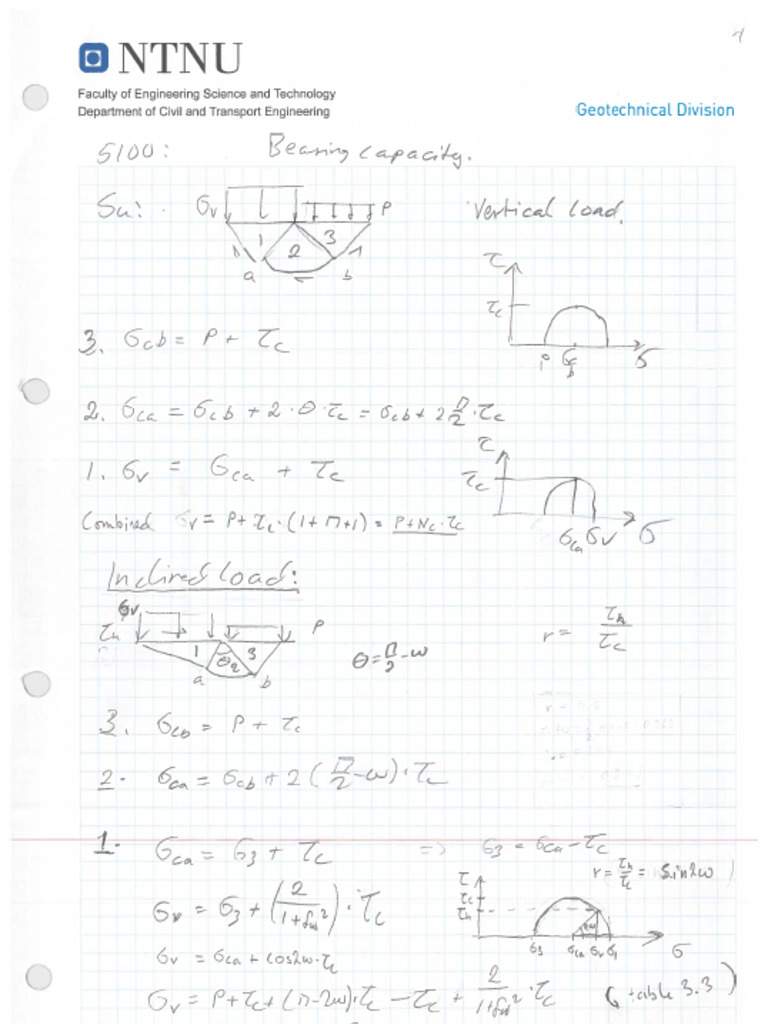 4
NTNU
Faculty of Engineering Science and Technology
Department of Civil and Transport Engineering
Geotechnical Division
S100: Bearing capacity.
Su: σv P Vertical load.
1 2 3
a b
τ
τc
P σcb σ
3. σcb = P + τc
2. σca = σcb + 2·θ·τc = σcb + 2 π/2·τc
τ
1. σv = σca + τc
τc
Combined σv = P + τc·(1+π+1) = P+Nc·τc
σca σv σ
Inclined load:
σv P
τh
1 θ2 3
a b
θ = π/2 - ω
r = τh/τc
3. σcb = P + τc
2. σca = σcb + 2(π/2 - ω)·τc
1. σca = σ3 + τc => σ3 = σca - τc
r = τh/τc = sin2ω
τ
τc
τh
σv = σ3 + (2/(1+fω²))·τc
σ3 σca σv σ1 σ
σv = σca + cos2ω·τc
σv = P + τc + (π-2ω)τc - τc + 2/(1+fω²)·τc (table 3.3)